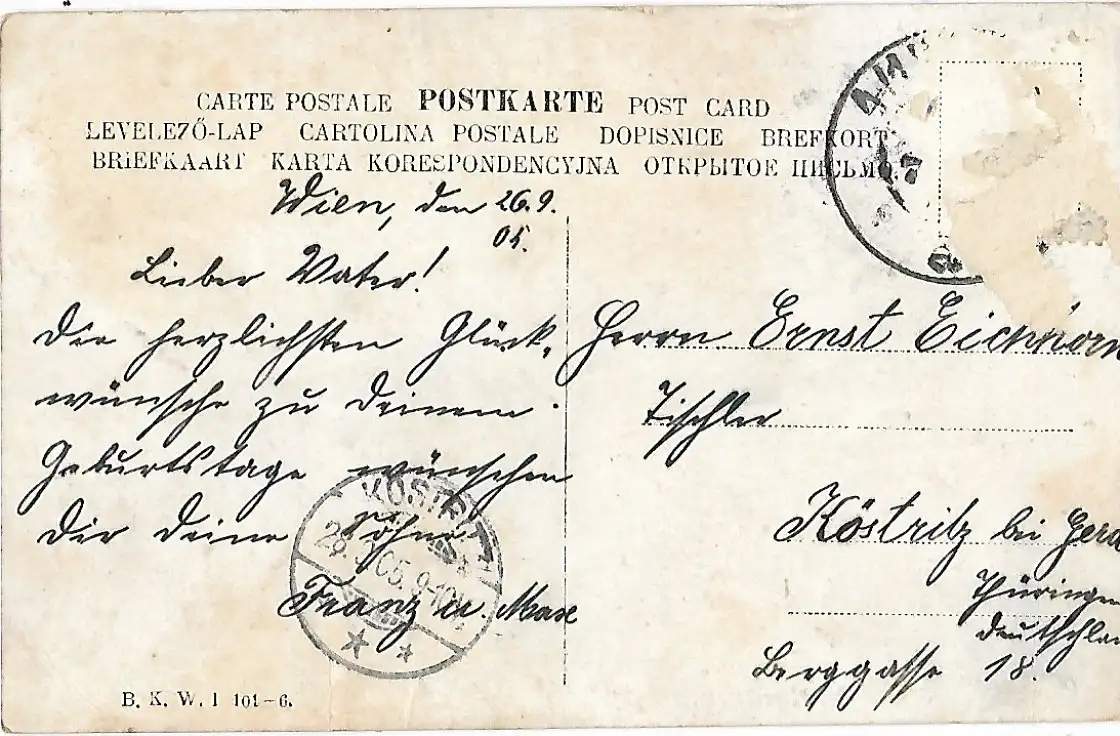 CARTE POSTALE POSTKARTE POST CARD
LEVELEZŐ-LAP CARTOLINA POSTALE DOPISNICE BREFKORT
BRIEFKAART KARTA KORESPONDENCYJNA ОТКРЫТОЕ ПИСЬМО
Wien, den 26.9.
05.
Lieber Vater!
Die herzlichsten Glück-
wünsche zu Deinem
Geburtstage wünschen
Dir Deine Söhne
Franz u. Max
Herrn Ernst Eichhorn
Tischler
Köstritz bei Gera
Thüringen
Deutschla
Berggasse 18.
KÖSTRITZ
05. 9-10
B. K. W. I 101-6.